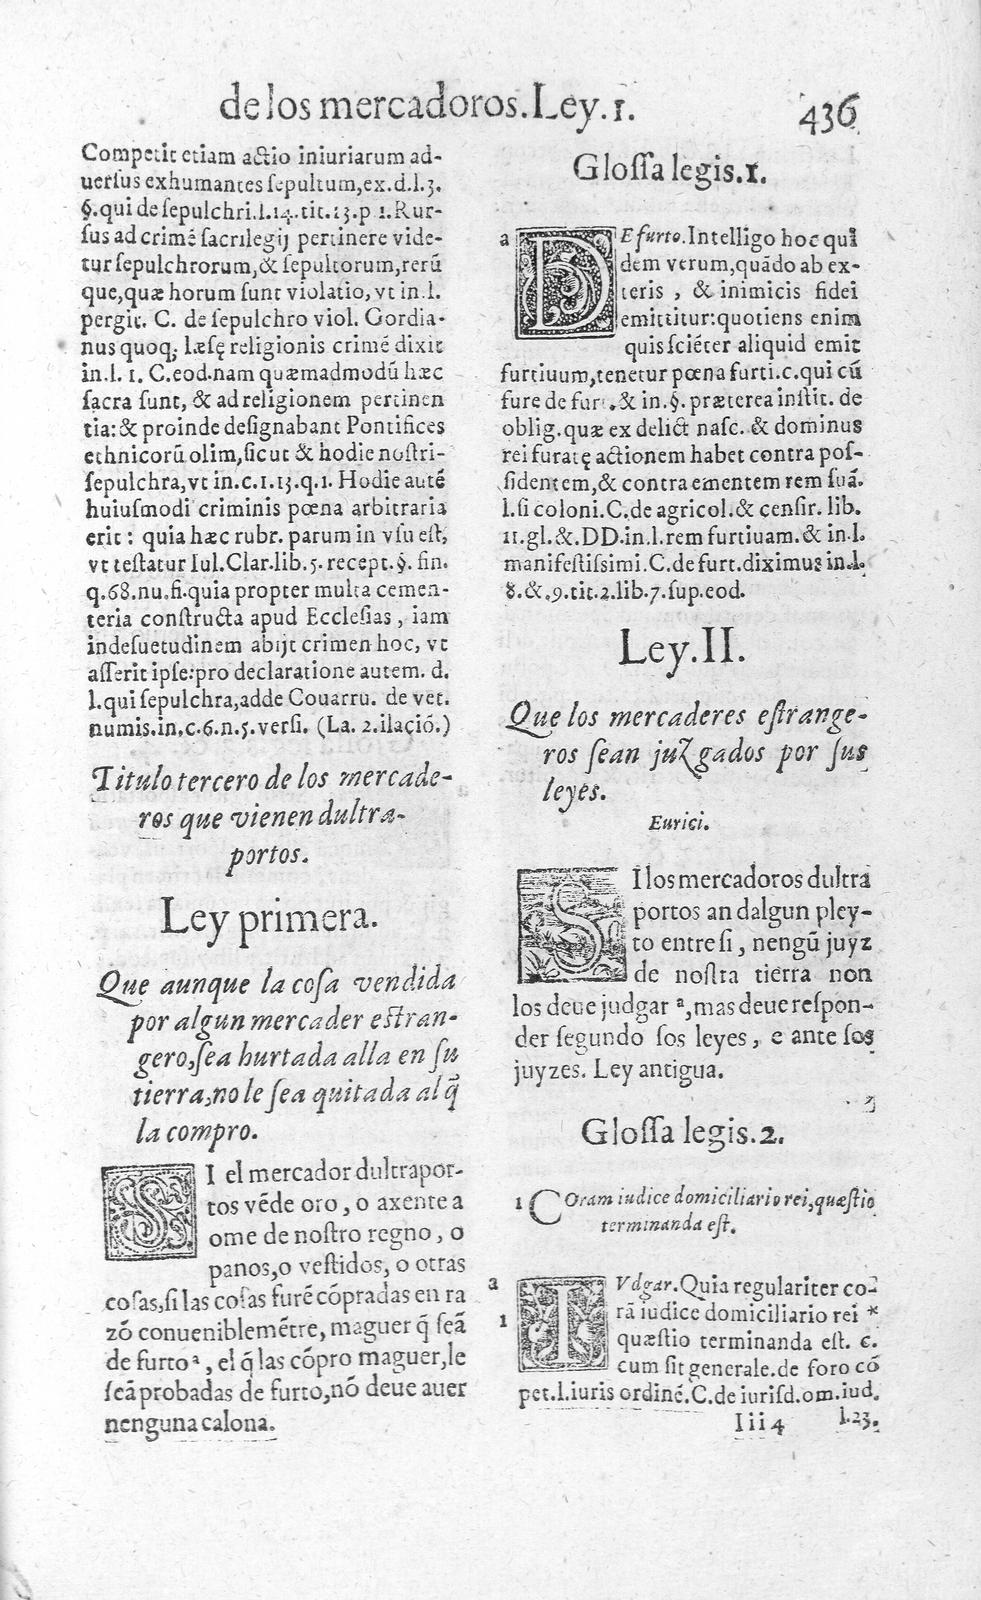 de los mercadoros. Ley. 1.
436
Competit etiam actio iniuriarum ad-
uersus exhumantes sepultum, ex. d. l. 3.
§. qui de sepulchri. l. 14. tit. 13. p 1. Rur-
sus ad crimẽ sacrilegij pertinere vide-
tur sepulchrorum, & sepultorum, rerũ
que, quæ horum sunt violatio, vt in. l.
pergit. C. de sepulchro viol. Gordia-
nus quoq; læsę religionis crimẽ dixit
in. l. 1. C. eod. nam quæmadmodũ hæc
sacra sunt, & ad religionem pertinen
tia: & proinde designabant Pontifices
ethnicorũ olim, sicut & hodie nostri-
sepulchra, vt in. c. 1. 13. q. 1. Hodie autẽ
huiusmodi criminis pœna arbitraria
erit: quia hæc rubr. parum in vsu est,
vt testatur Iul. Clar. lib. 5. recept. §. fin.
q. 68. nu. fi. quia propter multa cemen-
teria constructa apud Ecclesias, iam
indesuetudinem abijt crimen hoc, vt
asserit ipse: pro declaratione autem. d.
l. qui sepulchra, adde Couarru. de vet.
numis. in. c. 6. n. 5. versi. (La. 2. ilació.)
Titulo tercero de los mercade-
ros que vienen dultra-
portos.
Ley primera.
Que aunque la cosa vendida
por algun mercader estran-
gero, sea hurtada alla en su
tierra, no le sea quitada al q̃
la compro.
SI el mercador dultrapor-
tos vẽde oro, o axente a
ome de nostro regno, o
panos, o vestidos, o otras
cosas, si las cosas furẽ cõpradas en ra
zõ conueniblemẽtre, maguer q̃ seã
de furto ª, el q̃ las cõpro maguer, le
seã probadas de furto, nõ deue auer
nenguna calona.
Glossa legis. 1.
a DE furto. Intelligo hoc qui
dem verum, quãdo ab ex-
teris, & inimicis fidei
emittitur: quotiens enim
quis sciẽter aliquid emit
furtiuum, tenetur pœna furti. c. qui cũ
fure de fur. & in. §. præterea instit. de
oblig. quæ ex delict nasc. & dominus
rei furatę actionem habet contra pos-
sidentem, & contra ementem rem suã.
l. si coloni. C. de agricol. & censir. lib.
11. gl. &. DD. in. l. rem furtiuam. & in. l.
manifestissimi. C. de furt. diximus in. l.
8. &. 9. tit. 2. lib. 7. sup. eod.
Ley. II.
Que los mercaderes estrange-
ros sean juzgados por sus
leyes.
Eurici.
SI los mercadoros dultra
portos an dalgun pley-
to entre si, nengũ juyz
de nostra tierra non
los deue judgar ª, mas deue respon-
der segundo sos leyes, e ante sos
juyzes. Ley antigua.
Glossa legis. 2.
1 COram iudice domiciliario rei, quæstio
terminanda est.
a IVdgar. Quia regulariter co-
1 rã iudice domiciliario rei *
quæstio terminanda est. c.
cum sit generale. de foro cõ
pet. l. iuris ordinẽ. C. de iurisd. om. iud.
Iii 4 l. 23.